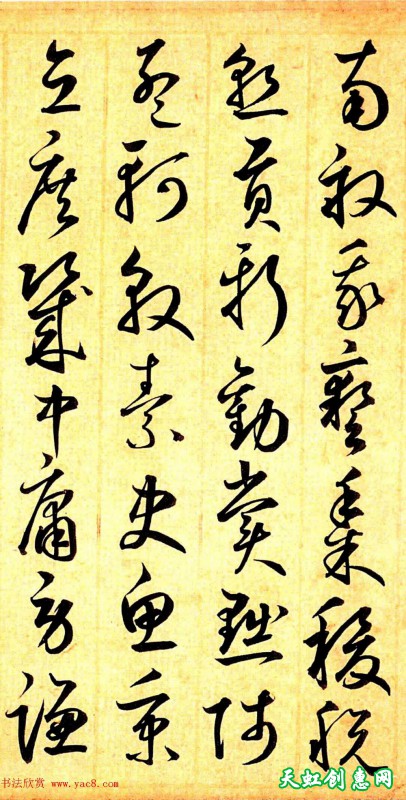 南畝我藝黍稷稅
熟貢新勸賞黜陟
孟軻敦素史魚秉
直庶幾中庸勞謙
书法欣赏 www.yac8.com
天虹创惠网